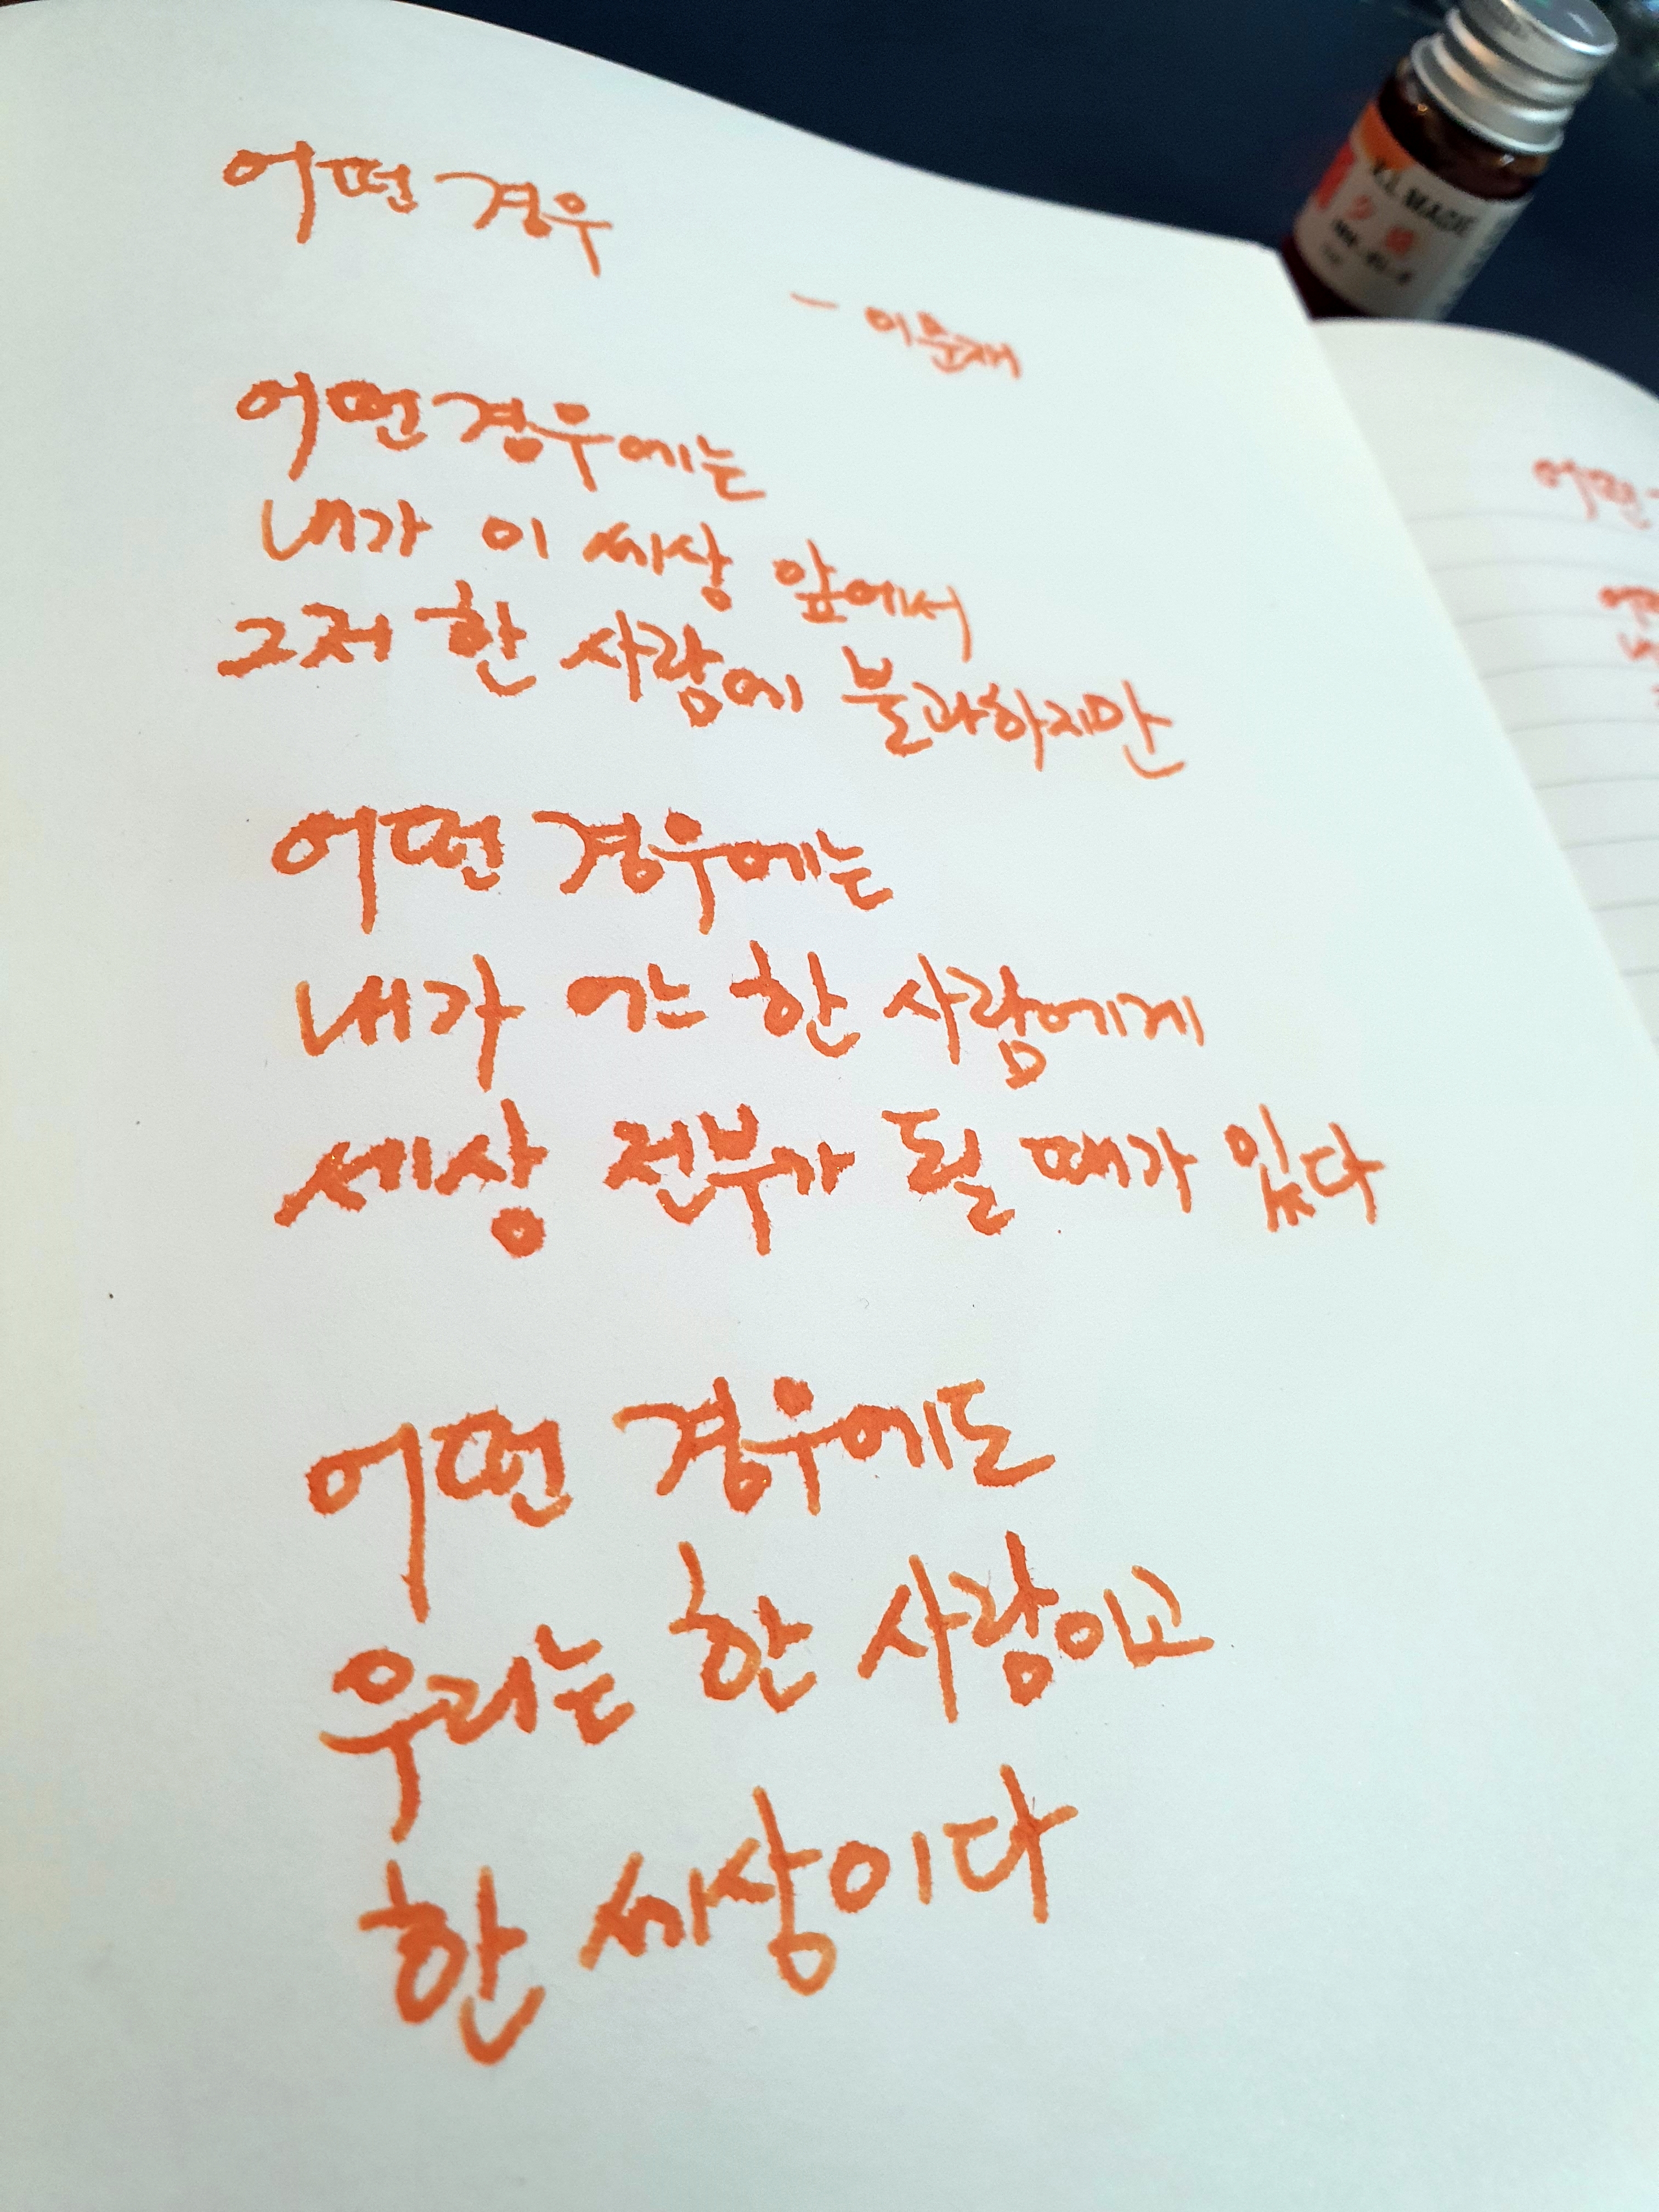 어떤 경우
- 이문재
어떤 경우에는
내가 이 세상 앞에서
그저 한 사람에 불과하지만
어떤 경우에는
내가 어느 한 사람에게
세상 전부가 될 때가 있다
어떤 경우에도
우리는 한 사람이고
한 세상이다
MAGIC
어떤